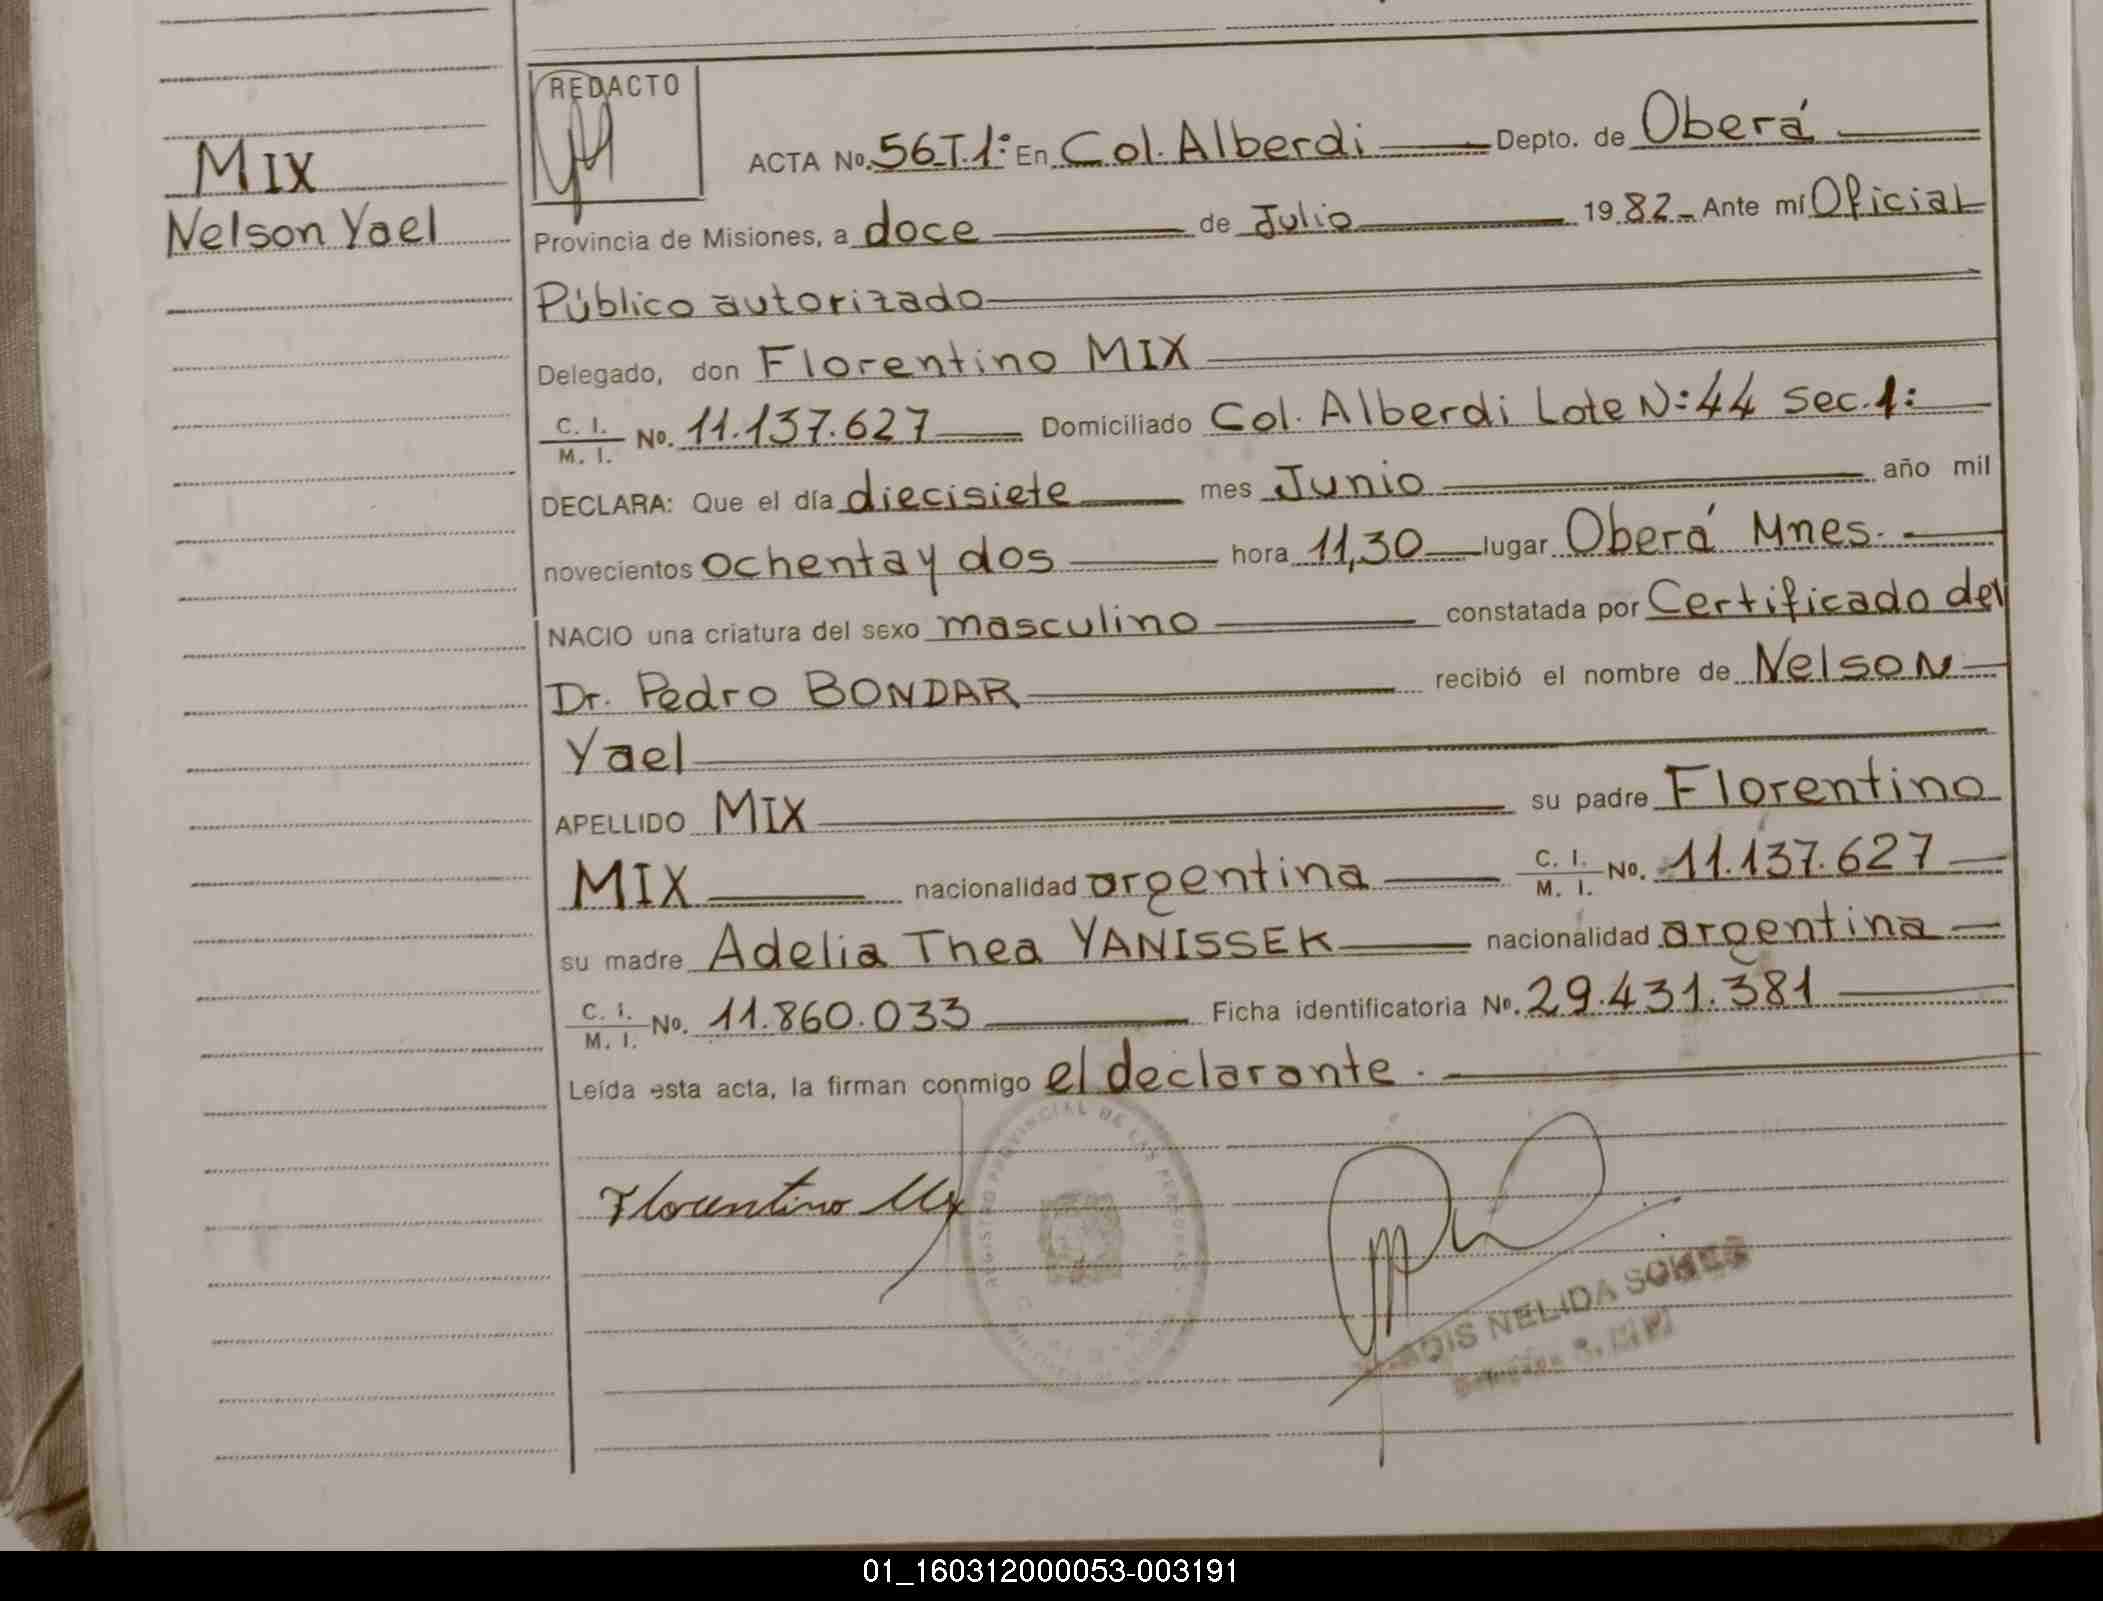 MIX
Nelson Yael
REDACTO
ACTA No. 56 T.1: En Col. Alberdi Depto. de Oberá
Provincia de Misiones, a doce de Julio 1982 Ante mí Oficial
Público autorizado
Delegado, don Florentino MIX
C. I. / M. I. No. 11.137.627 Domiciliado Col. Alberdi Lote N: 44 Sec. 1:
DECLARA: Que el día diecisiete mes Junio año mil
novecientos ochenta y dos hora 11,30 lugar Oberá Mnes.
NACIO una criatura del sexo masculino constatada por Certificado del
Dr. Pedro BONDAR recibió el nombre de Nelson
Yael
APELLIDO MIX su padre Florentino
MIX nacionalidad argentina C. I. / M. I. No. 11.137.627
su madre Adelia Thea YANISSEK nacionalidad argentina
C. I. / M. I. No. 11.860.033 Ficha identificatoria No. 29.431.381
Leída esta acta, la firman conmigo el declarante.
Florentino Mix
REGISTRO PROVINCIAL DE LAS PERSONAS
NELIDA
01_160312000053-003191